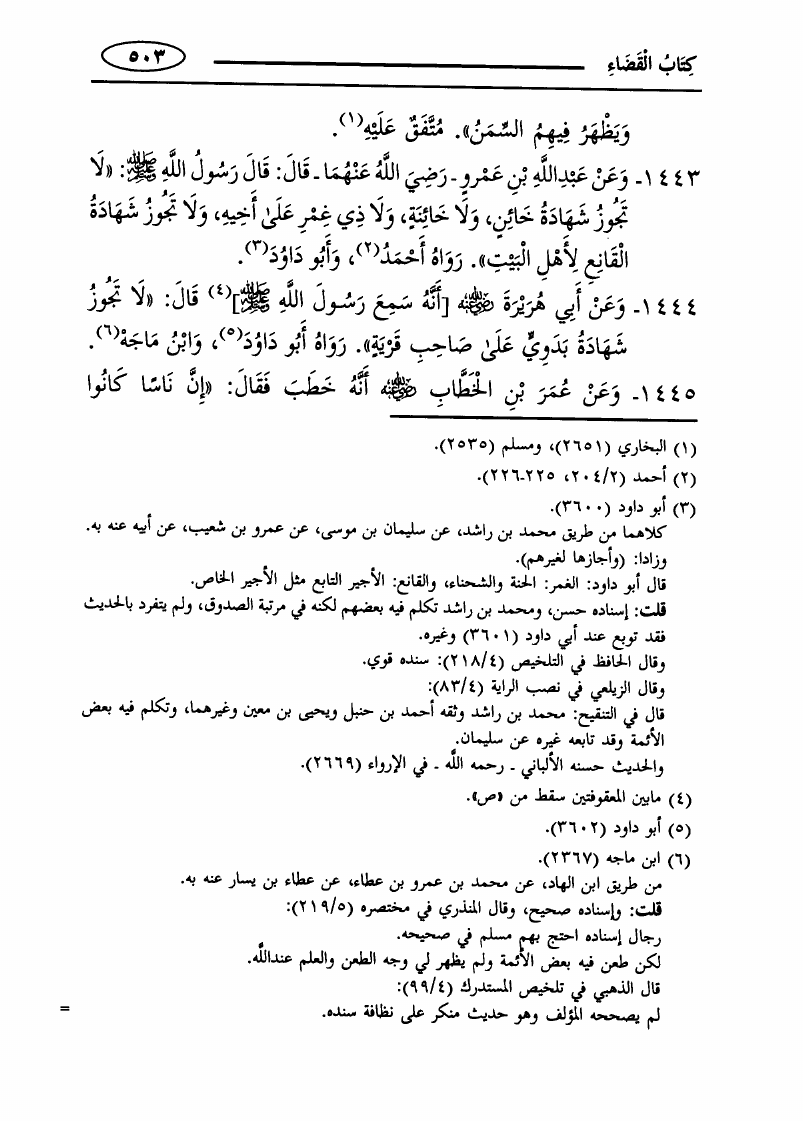 كِتَابُ الْقَضَاءِ ٥٠٣
وَيَظْهَرُ فِيهِمُ السِّمَنُ». مُتَّفَقٌ عَلَيْهِ(١).
١٤٤٣ـ وَعَنْ عَبْدِاللَّهِ بْنِ عَمْرٍو ـ رَضِيَ اللَّهُ عَنْهُمَا ـ قَالَ: قَالَ رَسُولُ اللَّهِ ﷺ: «لَا
تَجُوزُ شَهَادَةُ خَائِنٍ، وَلَا خَائِنَةٍ، وَلَا ذِي غِمْرٍ عَلَىٰ أَخِيهِ، وَلَا تَجُوزُ شَهَادَةُ
الْقَانِعِ لِأَهْلِ الْبَيْتِ». رَوَاهُ أَحْمَدُ(٢)، وَأَبُو دَاوُدَ(٣).
١٤٤٤ـ وَعَنْ أَبِي هُرَيْرَةَ رضي الله عنه [أَنَّهُ سَمِعَ رَسُولَ اللَّهِ ﷺ](٤) قَالَ: «لَا تَجُوزُ
شَهَادَةُ بَدَوِيٍّ عَلَىٰ صَاحِبِ قَرْيَةٍ». رَوَاهُ أَبُو دَاوُدَ(٥)، وَابْنُ مَاجَهْ(٦).
١٤٤٥ـ وَعَنْ عُمَرَ بْنِ الْخَطَّابِ رضي الله عنه أَنَّهُ خَطَبَ فَقَالَ: «إِنَّ نَاسًا كَانُوا
(١) البخاري (٢٦٥١)، ومسلم (٢٥٣٥).
(٢) أحمد (٢٠٤/٢، ٢٢٥ـ٢٢٦).
(٣) أبو داود (٣٦٠٠).
كلاهما من طريق محمد بن راشد، عن سليمان بن موسى، عن عمرو بن شعيب، عن أبيه عنه به.
وزادا: (وأجازها لغيرهم).
قال أبو داود: الغمر: الحنة والشحناء، والقانع: الأجير التابع مثل الأجير الخاص.
قلت: إسناده حسن، ومحمد بن راشد تكلم فيه بعضهم لكنه في مرتبة الصدوق، ولم يتفرد بالحديث
فقد توبع عند أبي داود (٣٦٠١) وغيره.
وقال الحافظ في التلخيص (٢١٨/٤): سنده قوي.
وقال الزيلعي في نصب الراية (٨٣/٤):
قال في التنقيح: محمد بن راشد وثقه أحمد بن حنبل ويحيى بن معين وغيرهما، وتكلم فيه بعض
الأئمة وقد تابعه غيره عن سليمان.
والحديث حسنه الألباني ـ رحمه اللَّه ـ في الإرواء (٢٦٦٩).
(٤) مابين المعقوفتين سقط من «ص».
(٥) أبو داود (٣٦٠٢).
(٦) ابن ماجه (٢٣٦٧).
من طريق ابن الهاد، عن محمد بن عمرو بن عطاء، عن عطاء بن يسار عنه به.
قلت: وإسناده صحيح، وقال المنذري في مختصره (٢١٩/٥):
رجال إسناده احتج بهم مسلم في صحيحه.
لكن طعن فيه بعض الأئمة ولم يظهر لي وجه الطعن والعلم عنداللَّه.
قال الذهبي في تلخيص المستدرك (٩٩/٤):
لم يصححه المؤلف وهو حديث منكر على نظافة سنده. =